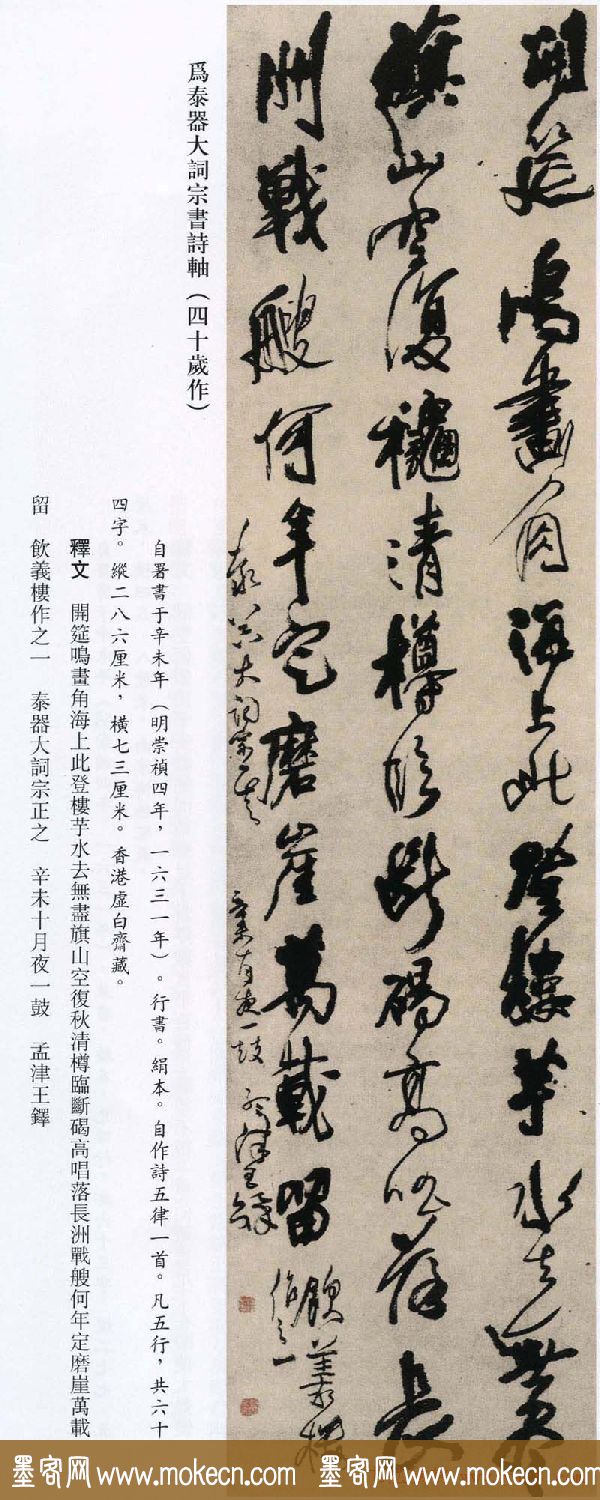 開筵鳴畫角海上此登樓芋水去無盡
旗山空復龝清樽臨斷碣高唱落長
洲戰艘何年定磨崖萬載留 飲義樓作之一
泰器大詞宗正之 辛未十月夜一鼓 孟津王鐸
爲泰器大詞宗書詩軸（四十歲作）
自署書于辛未年（明崇禎四年，一六三一年）。行書。絹本。自作詩五律一首。凡五行，共六十
四字。縱二八六厘米，橫七三厘米。香港虛白齋藏。
釋文 開筵鳴畫角海上此登樓芋水去無盡旗山空復秋清樽臨斷碣高唱落長洲戰艘何年定磨崖萬載
留 飲義樓作之一 泰器大詞宗正之 辛未十月夜一鼓 孟津王鐸
墨客网 www.mokecn.com 墨客网 www.mokecn.com